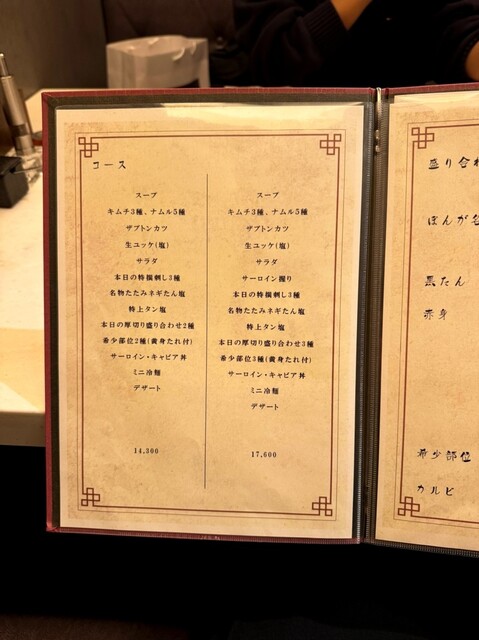 コース
スープ
キムチ3種、ナムル5種
ザブトンカツ
生ユッケ(塩)
サラダ
本日の特撰刺し3種
名物たたみネギたん塩
特上タン塩
本日の厚切り盛り合わせ2種
希少部位2種(黄身たれ付)
サーロイン・キャビア丼
ミニ冷麺
デザート
14,300
スープ
キムチ3種、ナムル5種
ザブトンカツ
生ユッケ(塩)
サラダ
サーロイン握り
本日の特撰刺し3種
名物たたみネギたん塩
特上タン塩
本日の厚切り盛り合わせ3種
希少部位3種(黄身たれ付)
サーロイン・キャビア丼
ミニ冷麺
デザート
17,600
盛り合
ぼんが
黒たん
赤身
希少部位
カルビ